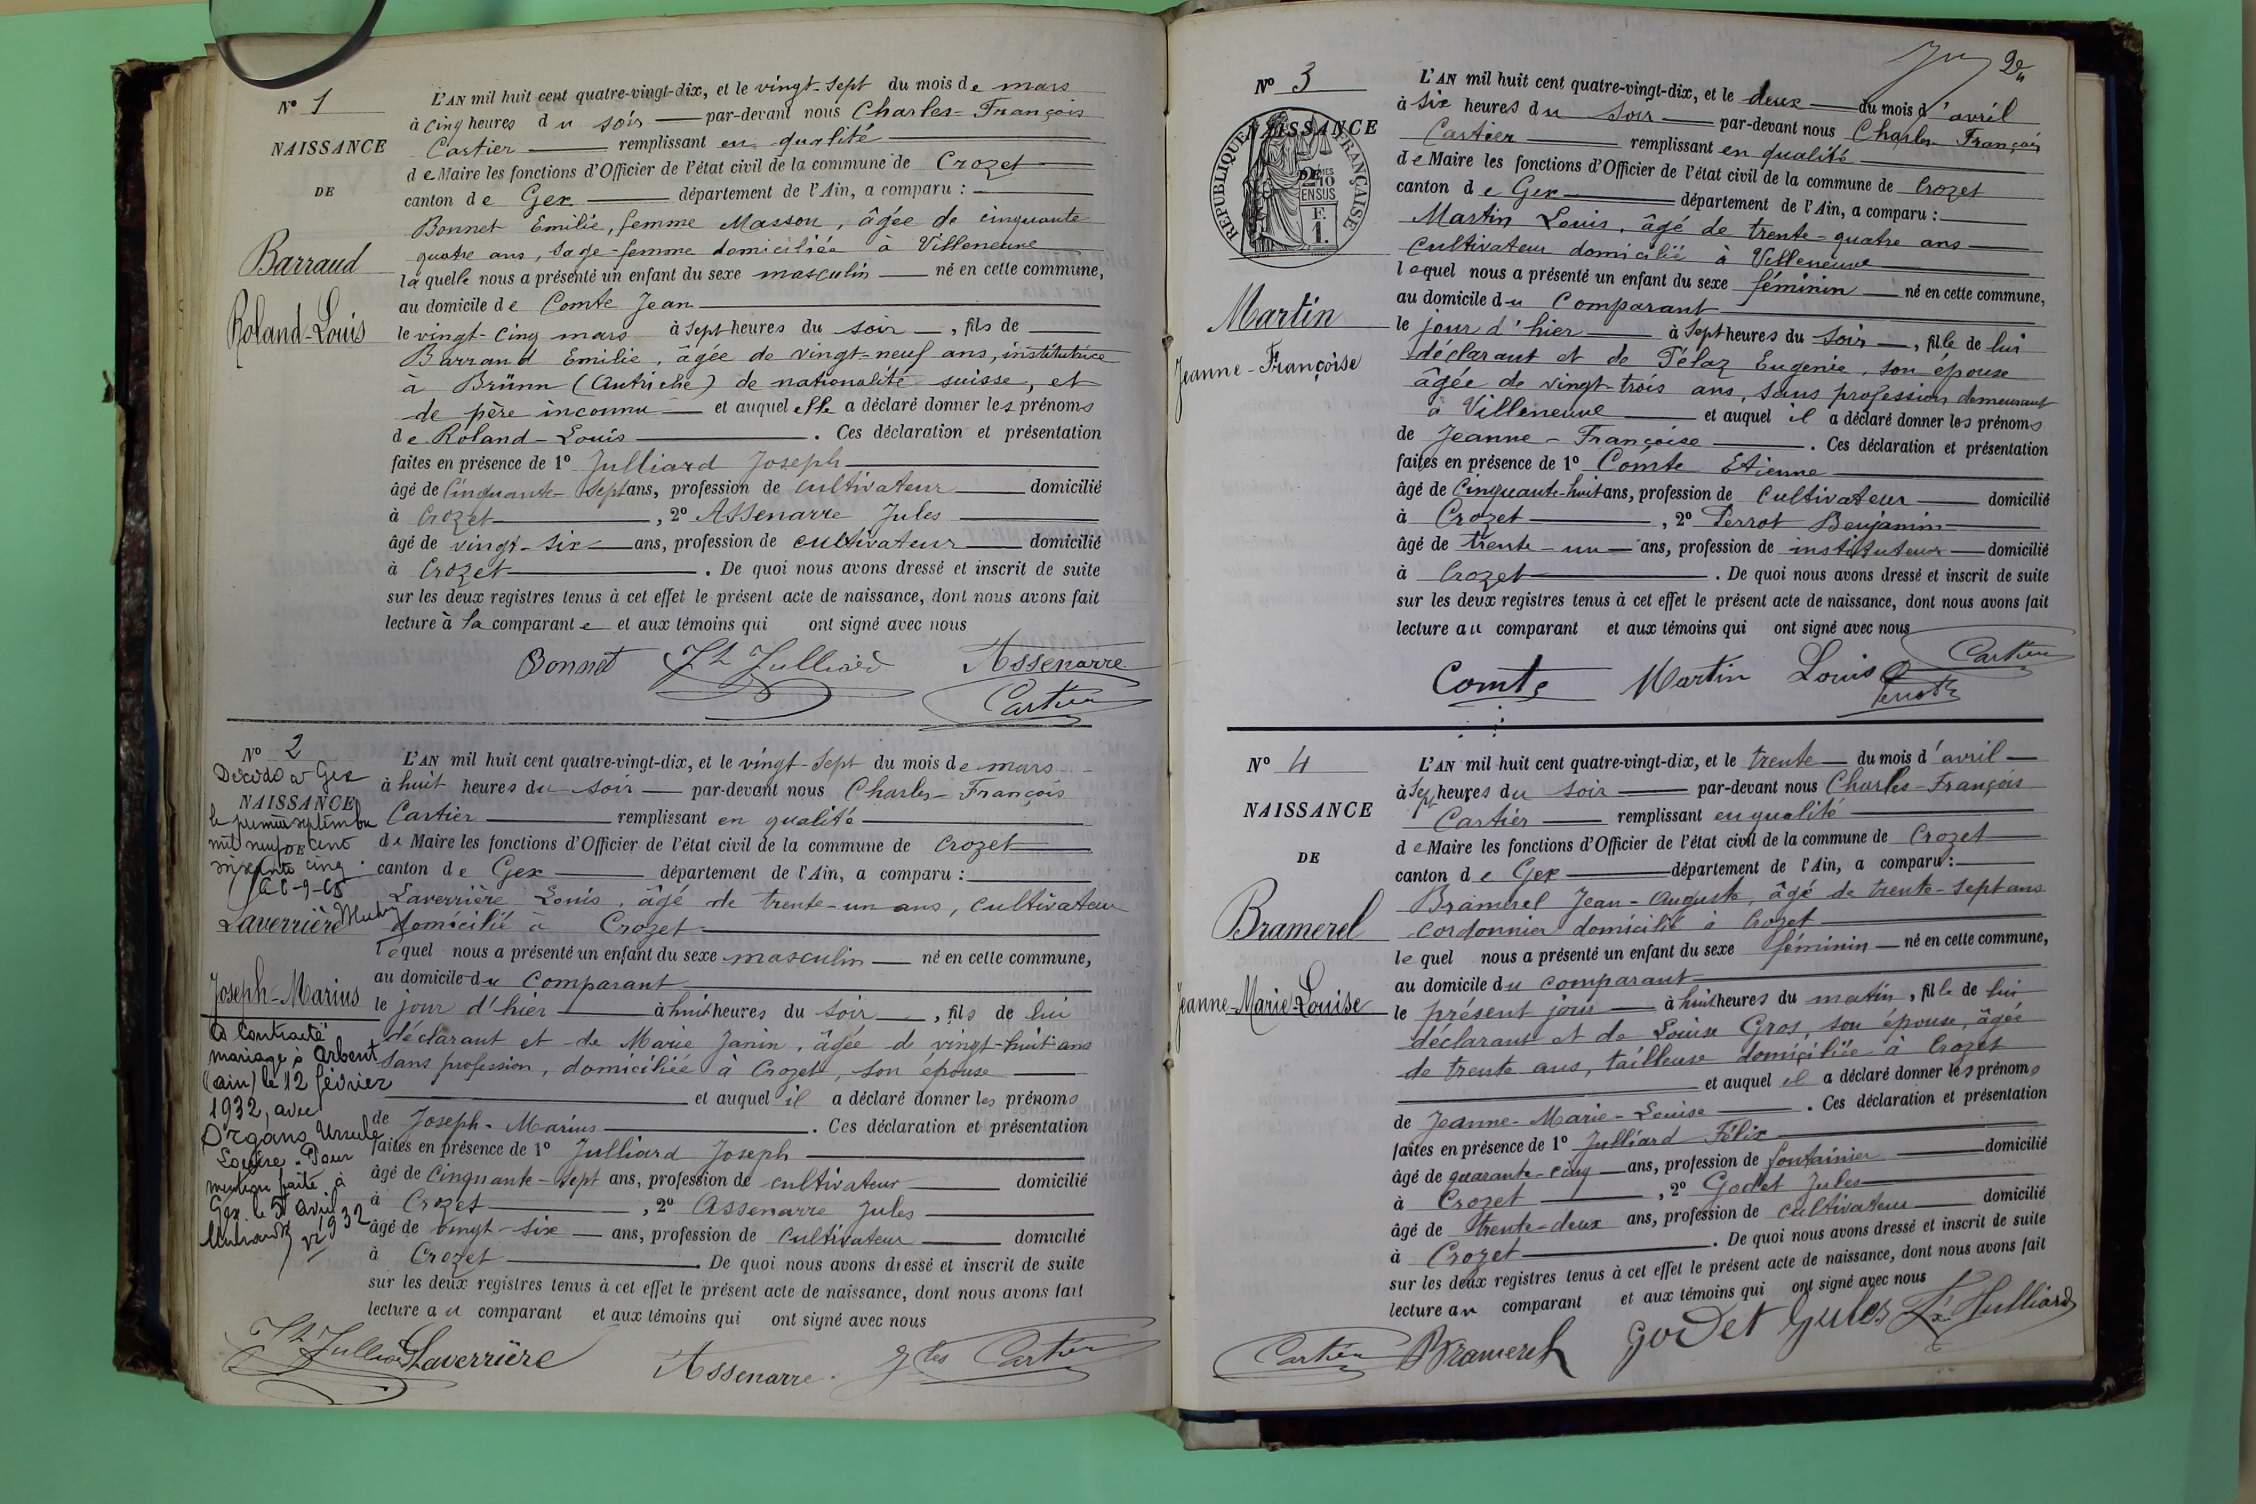 N° 1
NAISSANCE
DE
Barraud
Roland-Louis
L'AN mil huit cent quatre-vingt-dix, et le vingt-sept du mois de mars
à cinq heures du soir par-devant nous Charles-François
Cartier remplissant en qualité
de Maire les fonctions d'Officier de l'état civil de la commune de Crozet
canton de Gex département de l'Ain, a comparu :
Bonnet Emilie, femme Masson, âgée de cinquante
quatre ans, sage-femme domiciliée à Villeneuve
laquelle nous a présenté un enfant du sexe masculin né en cette commune,
au domicile de Comte Jean
le vingt-cinq mars à sept heures du soir, fils de
Barraud Emilie, âgée de vingt-neuf ans, institutrice
à Brünn (Autriche) de nationalité suisse, et
de père inconnu et auquel elle a déclaré donner les prénoms
de Roland-Louis . Ces déclaration et présentation
faites en présence de 1° Julliard Joseph
âgé de Cinquante-sept ans, profession de cultivateur domicilié
à Crozet , 2° Assenarre Jules
âgé de vingt-six ans, profession de cultivateur domicilié
à Crozet . De quoi nous avons dressé et inscrit de suite
sur les deux registres tenus à cet effet le présent acte de naissance, dont nous avons fait
lecture à la comparante et aux témoins qui ont signé avec nous
Bonnet Jh Julliard Assenarre
Cartier
N° 2
Décédé à Gex
NAISSANCE
le premier septembre
mil neuf cent
DE
soixante cinq.
Laverrière
Joseph-Marius
A contracté
mariage à Arbent
(ain) le 12 février
1932, avec
Organs Ursule
Louise. Pour
mention faite à
Gex le 5 avril
1932
L'AN mil huit cent quatre-vingt-dix, et le vingt-sept du mois de mars
à huit heures du soir par-devant nous Charles-François
Cartier remplissant en qualité
de Maire les fonctions d'Officier de l'état civil de la commune de Crozet
canton de Gex département de l'Ain, a comparu :
Laverrière Louis, âgé de trente-un ans, cultivateur
domicilié à Crozet
lequel nous a présenté un enfant du sexe masculin né en cette commune,
au domicile du Comparant
le jour d'hier à huit heures du soir, fils de lui
déclarant et de Marie Janin, âgée de vingt-huit ans
sans profession, domiciliée à Crozet, son épouse
et auquel il a déclaré donner les prénoms
de Joseph-Marius . Ces déclaration et présentation
faites en présence de 1° Julliard Joseph
âgé de cinquante-sept ans, profession de cultivateur domicilié
à Crozet , 2° Assenarre Jules
âgé de vingt-six ans, profession de cultivateur domicilié
à Crozet . De quoi nous avons dressé et inscrit de suite
sur les deux registres tenus à cet effet le présent acte de naissance, dont nous avons fait
lecture au comparant et aux témoins qui ont signé avec nous
Jh Julliard Laverrière Assenarre Cartier
N° 3
NAISSANCE
RÉPUBLIQUE FRANÇAISE
Martin
Jeanne-Françoise
L'AN mil huit cent quatre-vingt-dix, et le deux du mois d'avril
à six heures du soir par-devant nous Charles François
Cartier remplissant en qualité
de Maire les fonctions d'Officier de l'état civil de la commune de Crozet
canton de Gex département de l'Ain, a comparu :
Martin Louis, âgé de trente-quatre ans
cultivateur domicilié à Villeneuve
lequel nous a présenté un enfant du sexe féminin né en cette commune,
au domicile du Comparant
le jour d'hier à sept heures du soir, fille de lui
déclarant et de Pélaz Eugenie, son épouse
âgée de vingt-trois ans, sans profession demeurant
à Villeneuve et auquel il a déclaré donner les prénoms
de Jeanne-Françoise . Ces déclaration et présentation
faites en présence de 1° Comte Etienne
âgé de Cinquante-huit ans, profession de cultivateur domicilié
à Crozet , 2° Perrot Benjamin
âgé de trente-un ans, profession de instituteur domicilié
à Crozet . De quoi nous avons dressé et inscrit de suite
sur les deux registres tenus à cet effet le présent acte de naissance, dont nous avons fait
lecture au comparant et aux témoins qui ont signé avec nous
Comte Martin Louis Cartier
Perrot
N° 4
NAISSANCE
DE
Bramerel
Jeanne-Marie-Louise
L'AN mil huit cent quatre-vingt-dix, et le trente du mois d'avril
à sept heures du soir par-devant nous Charles-François
Cartier remplissant en qualité
de Maire les fonctions d'Officier de l'état civil de la commune de Crozet
canton de Gex département de l'Ain, a comparu :
Bramerel Jean-Auguste, âgé de trente-sept ans
cordonnier domicilié à Crozet
lequel nous a présenté un enfant du sexe féminin né en cette commune,
au domicile du comparant
le présent jour à huit heures du matin, fille de lui
déclarant et de Louise Gros, son épouse, âgée
de trente ans, tailleuse domiciliée à Crozet
et auquel il a déclaré donner les prénoms
de Jeanne-Marie-Louise . Ces déclaration et présentation
faites en présence de 1° Julliard Félix
âgé de quarante-cinq ans, profession de fontainier domicilié
à Crozet , 2° Godet Jules
âgé de trente-deux ans, profession de cultivateur domicilié
à Crozet . De quoi nous avons dressé et inscrit de suite
sur les deux registres tenus à cet effet le présent acte de naissance, dont nous avons fait
lecture au comparant et aux témoins qui ont signé avec nous
Cartier Bramerel Godet Jules Fx Julliard